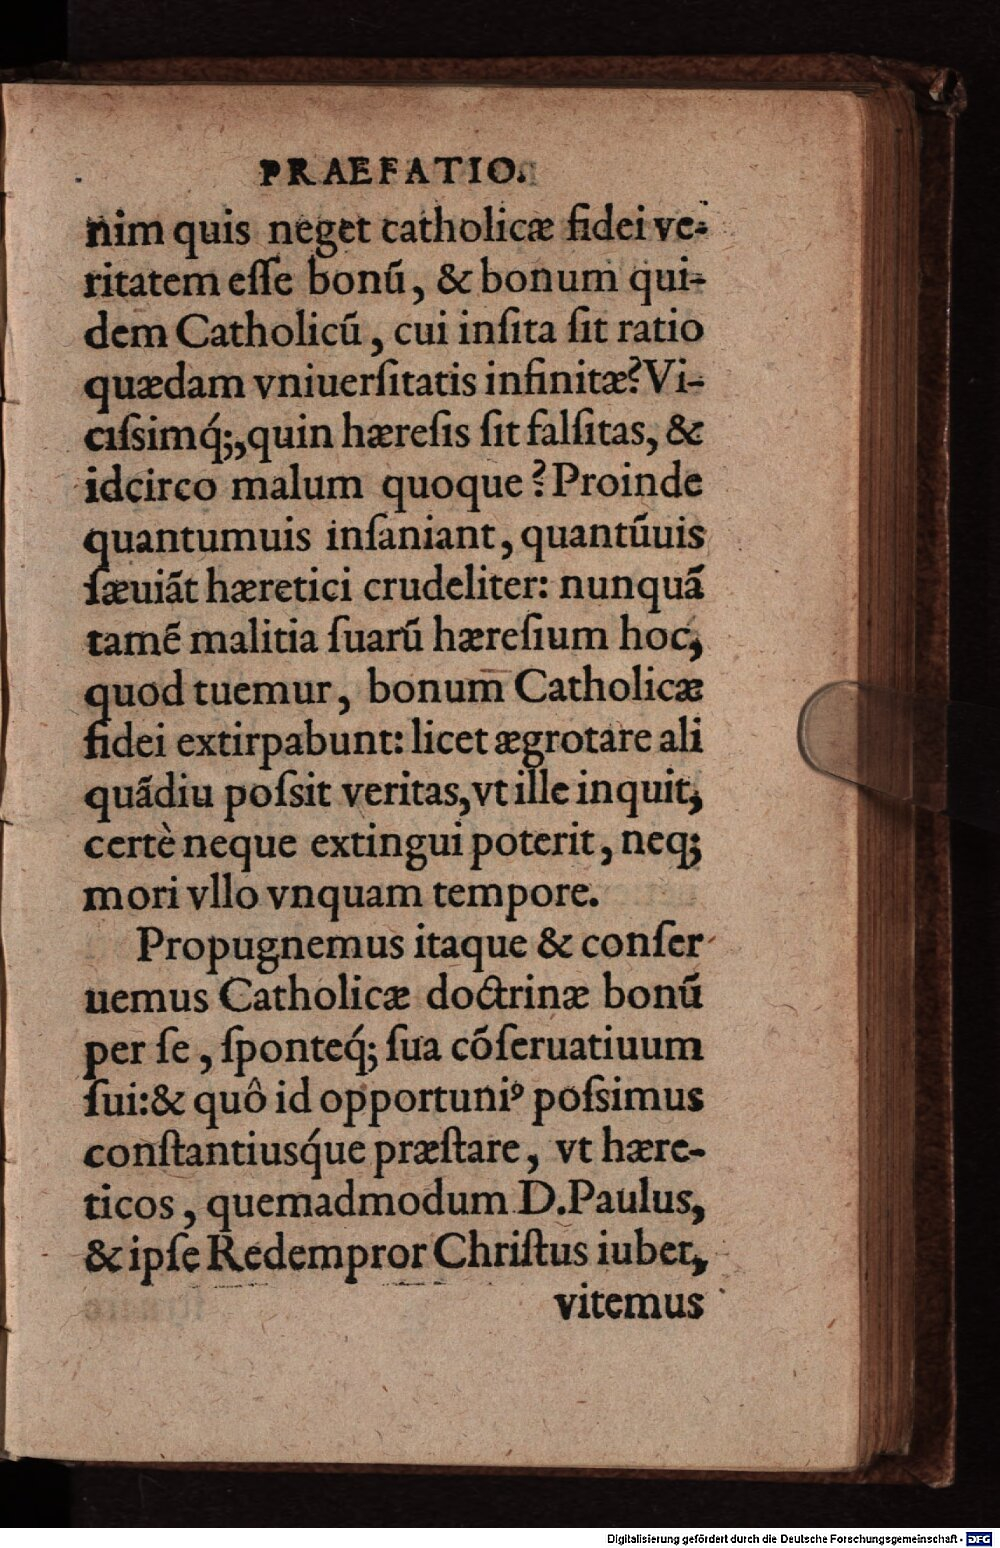 PRAEFATIO.
nim quis neget catholicæ fidei ve-
ritatem eſſe bonũ, & bonum qui-
dem Catholicũ, cui inſita ſit ratio
quædam vniuerſitatis infinitæ? Vi-
ciſsimq́;, quin hæreſis ſit falſitas, &
idcirco malum quoque? Proinde
quantumuis inſaniant, quantũuis
ſæuiãt hæretici crudeliter: nunquã
tamẽ malitia ſuarũ hæreſium hoc,
quod tuemur, bonum Catholicæ
fidei extirpabunt: licet ægrotare ali
quãdiu poſsit veritas, vt ille inquit,
certè neque extingui poterit, neq;
mori vllo vnquam tempore.
Propugnemus itaque & conſer-
uemus Catholicæ doctrinæ bonũ
per ſe, ſponteq́; ſua cõſeruatiuum
ſui: & quô id opportuniꝰ poſsimus
conſtantiusq́ue præſtare, vt hære-
ticos, quemadmodum D. Paulus,
& ipſe Redempror Chriſtus iubet,
vitemus
Digitalisierung gefördert durch die Deutsche Forschungsgemeinschaft - DFG